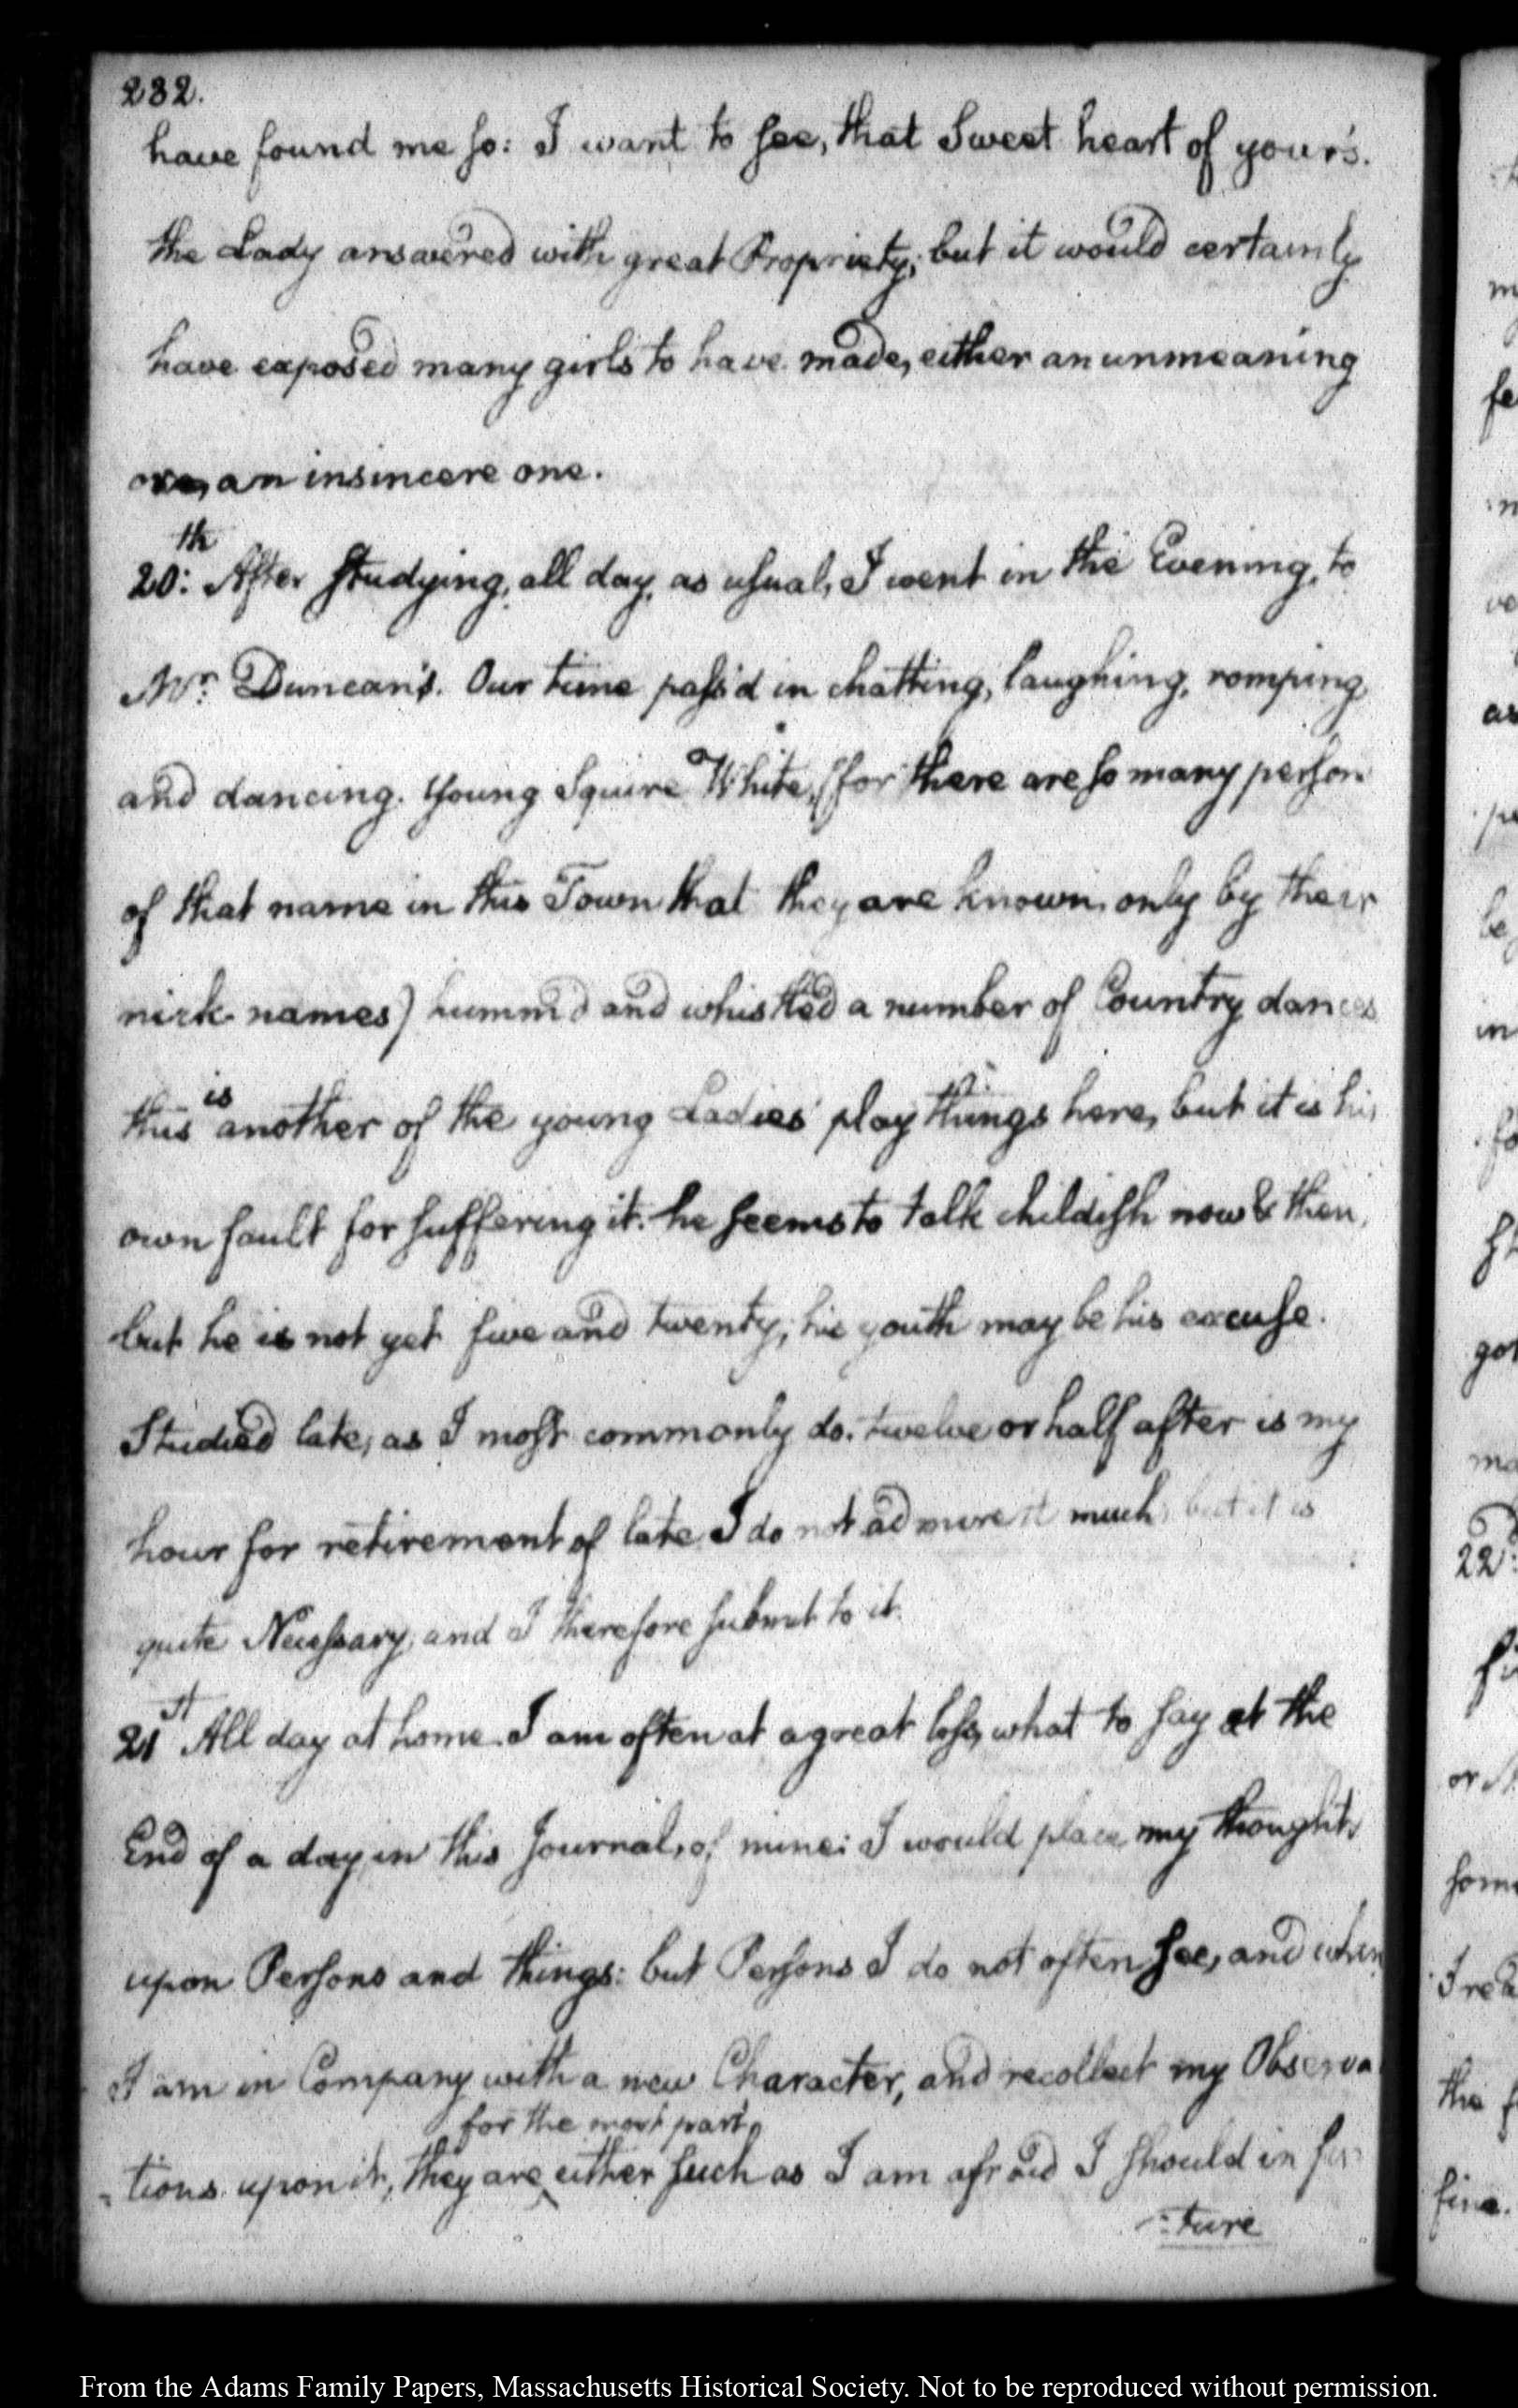 232.
have found me so: I want to see, that Sweet heart of your's.
the Lady answered with great Propriety; but it would certainly
have exposed many girls to have made, either an unmeaning
an insincere one.
20:th After studying, all day, as usual, I went in the Evening, to
Mr. Duncan's. Our time pass'd in chatting, laughing, romping,
and dancing. Young Squire White, (for there are so many person
of that name in this Town that they are known only by their
nick names) humm'd and whistled a number of Country dances
this is another of the young Ladies' play things here, but it is his
own fault for suffering it: he seems to talk childish now & then,
but he is not yet five and twenty; his youth may be his excuse.
Studied late, as I most commonly do. twelve or half after is my
hour for retirement of late I do not admire it much, but it is
quite Necessary, and I therefore submit to it.
21st All day at home. I am often at a great loss, what to say at the
End of a day, in this Journal, of mine: I would place my thoughts
upon Persons and things: but Persons I do not often see, and when
I am in Company with a new Character, and recollect my Observa
-tions upon it, they are for the most part, either such as I am afraid I should in fu
-ture
m
fe
as
be
in
22:
or
some
the
fine.
From the Adams Family Papers, Massachusetts Historical Society. Not to be reproduced without permission.